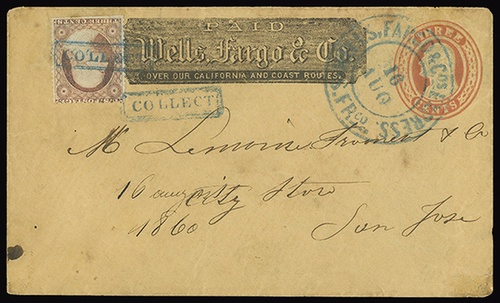 PAID
Wells, Fargo & Co.
OVER OUR CALIFORNIA AND COAST ROUTES.
COLLECT
COLLECT
WELLS, FARGO & CO'S EXPRESS
16
AUG
S. FR'CO.
THREE
CENTS
& Co
16 august City Store
1860 San Jose